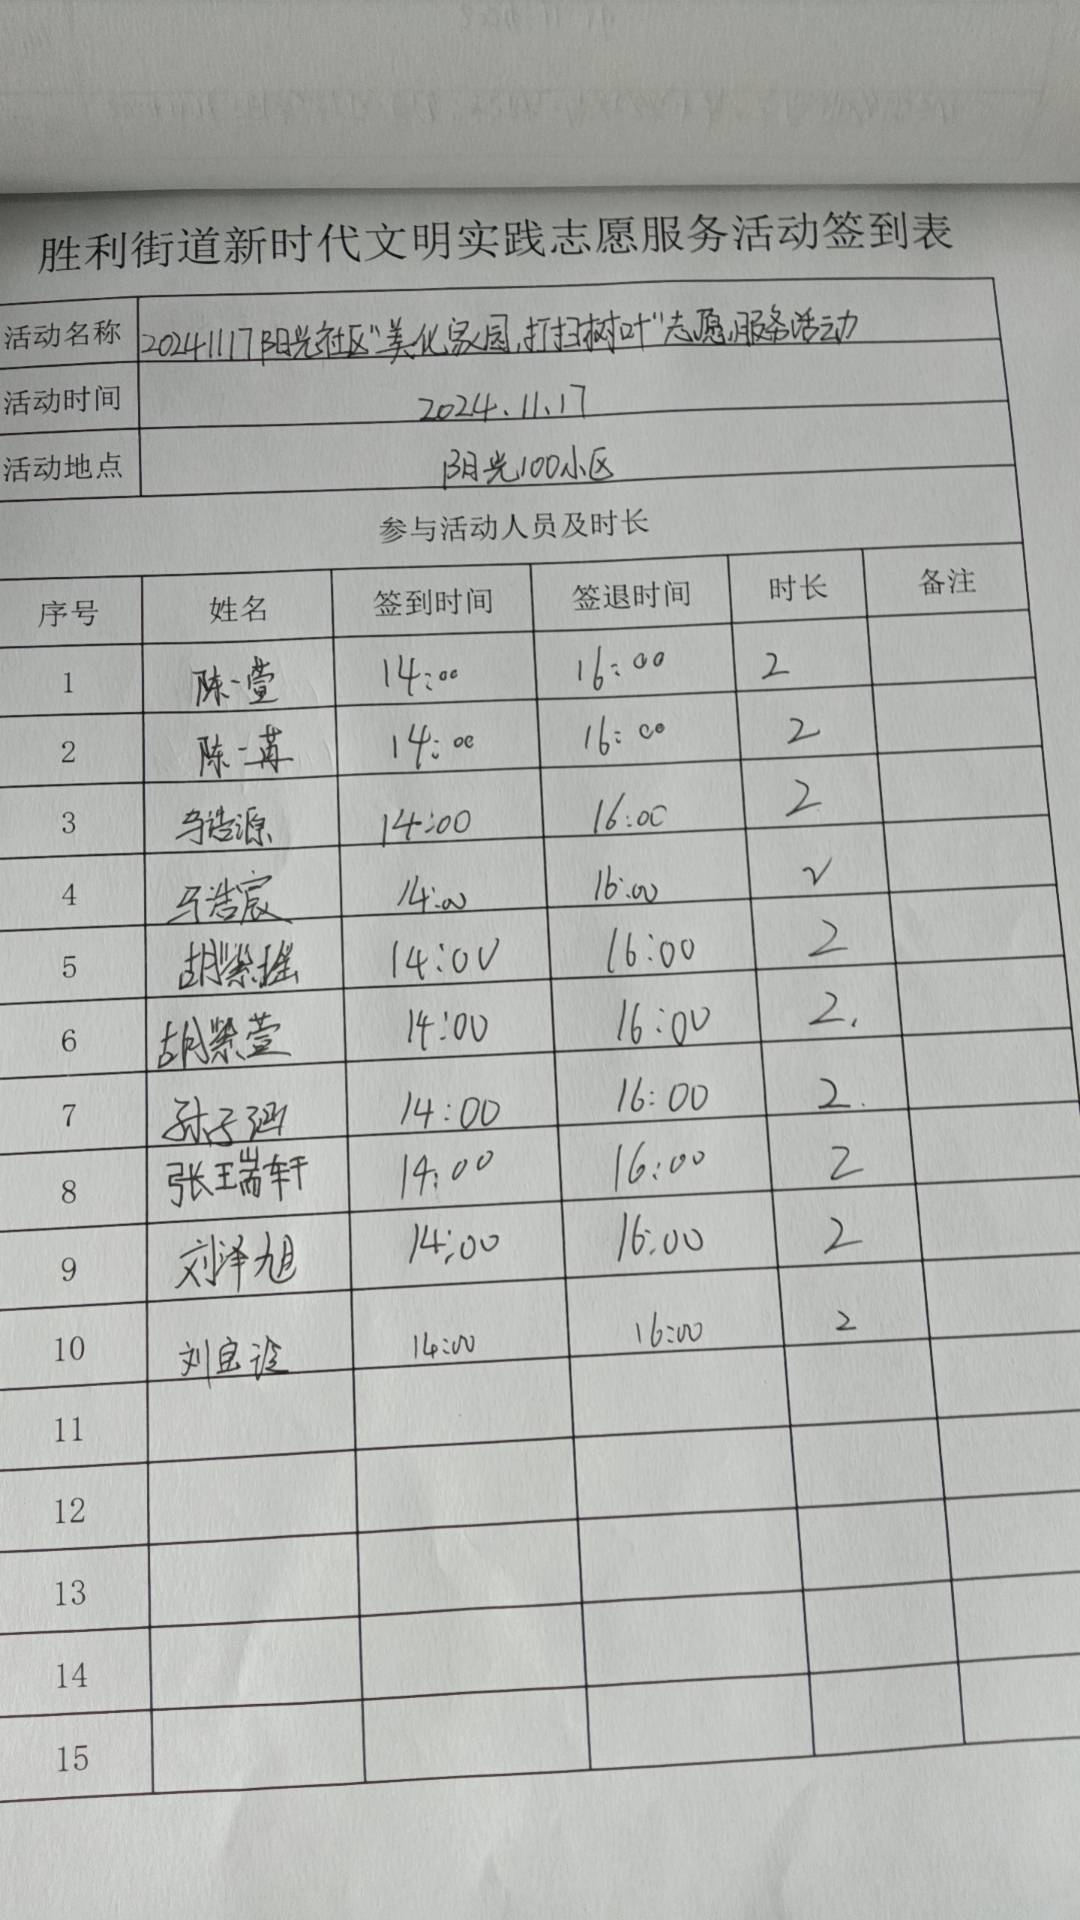 胜利街道新时代文明实践志愿服务活动签到表
活动名称 20241117阳光社区"美化家园,打扫树叶"志愿服务活动
活动时间 2024.11.17
活动地点 阳光100小区
参与活动人员及时长
序号 姓名 签到时间 签退时间 时长 备注
1 陈一萱 14:00 16:00 2
2 陈一苒 14:00 16:00 2
3 马浩源 14:00 16:00 2
4 马浩宸 14:00 16:00 2
5 胡紫瑶 14:00 16:00 2
6 胡紫萱 14:00 16:00 2.
7 孙子涵 14:00 16:00 2.
8 张瑞轩 14:00 16:00 2
9 刘泽旭 14:00 16:00 2
10 刘宜 14:00 16:00 2
11
12
13
14
15